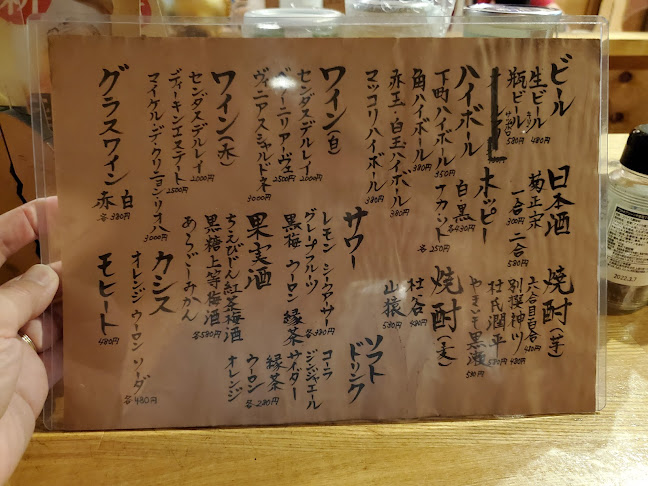 ビール
生ビール 480円
瓶ビール キリン サッポロ 580円
ハイボール
下町ハイボール 350円
角ハイボール 380円
赤玉・白玉ハイボール 380円
マッコリハイボール 380円
ワイン(白)
センダスデルレイ 2000円
ヴィーニャ
2500円
シャルドネ 3000円
ワイン(赤)
センダスデルレイ 2000円
ディーキンエステート 2500円
マイケル・デイ・クリニョン・リオハ 3000円
グラスワイン
白
赤 各380円
日本酒
菊正宗
一合 300円
二合 580円
ホッピー
白 黒 各430円
ナカ 各250円
サワー
レモン シークァーサー
グレープフルーツ
黒梅 ウーロン 緑茶 各380円
果実酒
ちえびじん紅茶梅酒
黒糖上等梅酒 各580円
あらごしみかん
カシス
オレンジ ウーロン ソーダ 各480円
モヒート 480円
焼酎(芋)
六合目 480円
別撰神川 480円
杜氏潤平 580円
やきいも黒瀬 580円
焼酎(麦)
杜谷 480円
山猿 580円
ソフトドリンク
コーラ
ジンジャエール
サイダー
緑茶
ウーロン
オレンジ 各280円